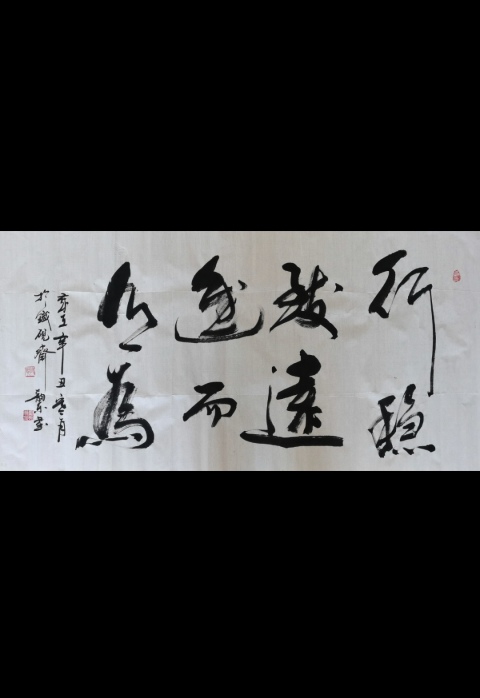 行穩
致遠
進而
有為
歲在辛丑月
於鐵硯齋書